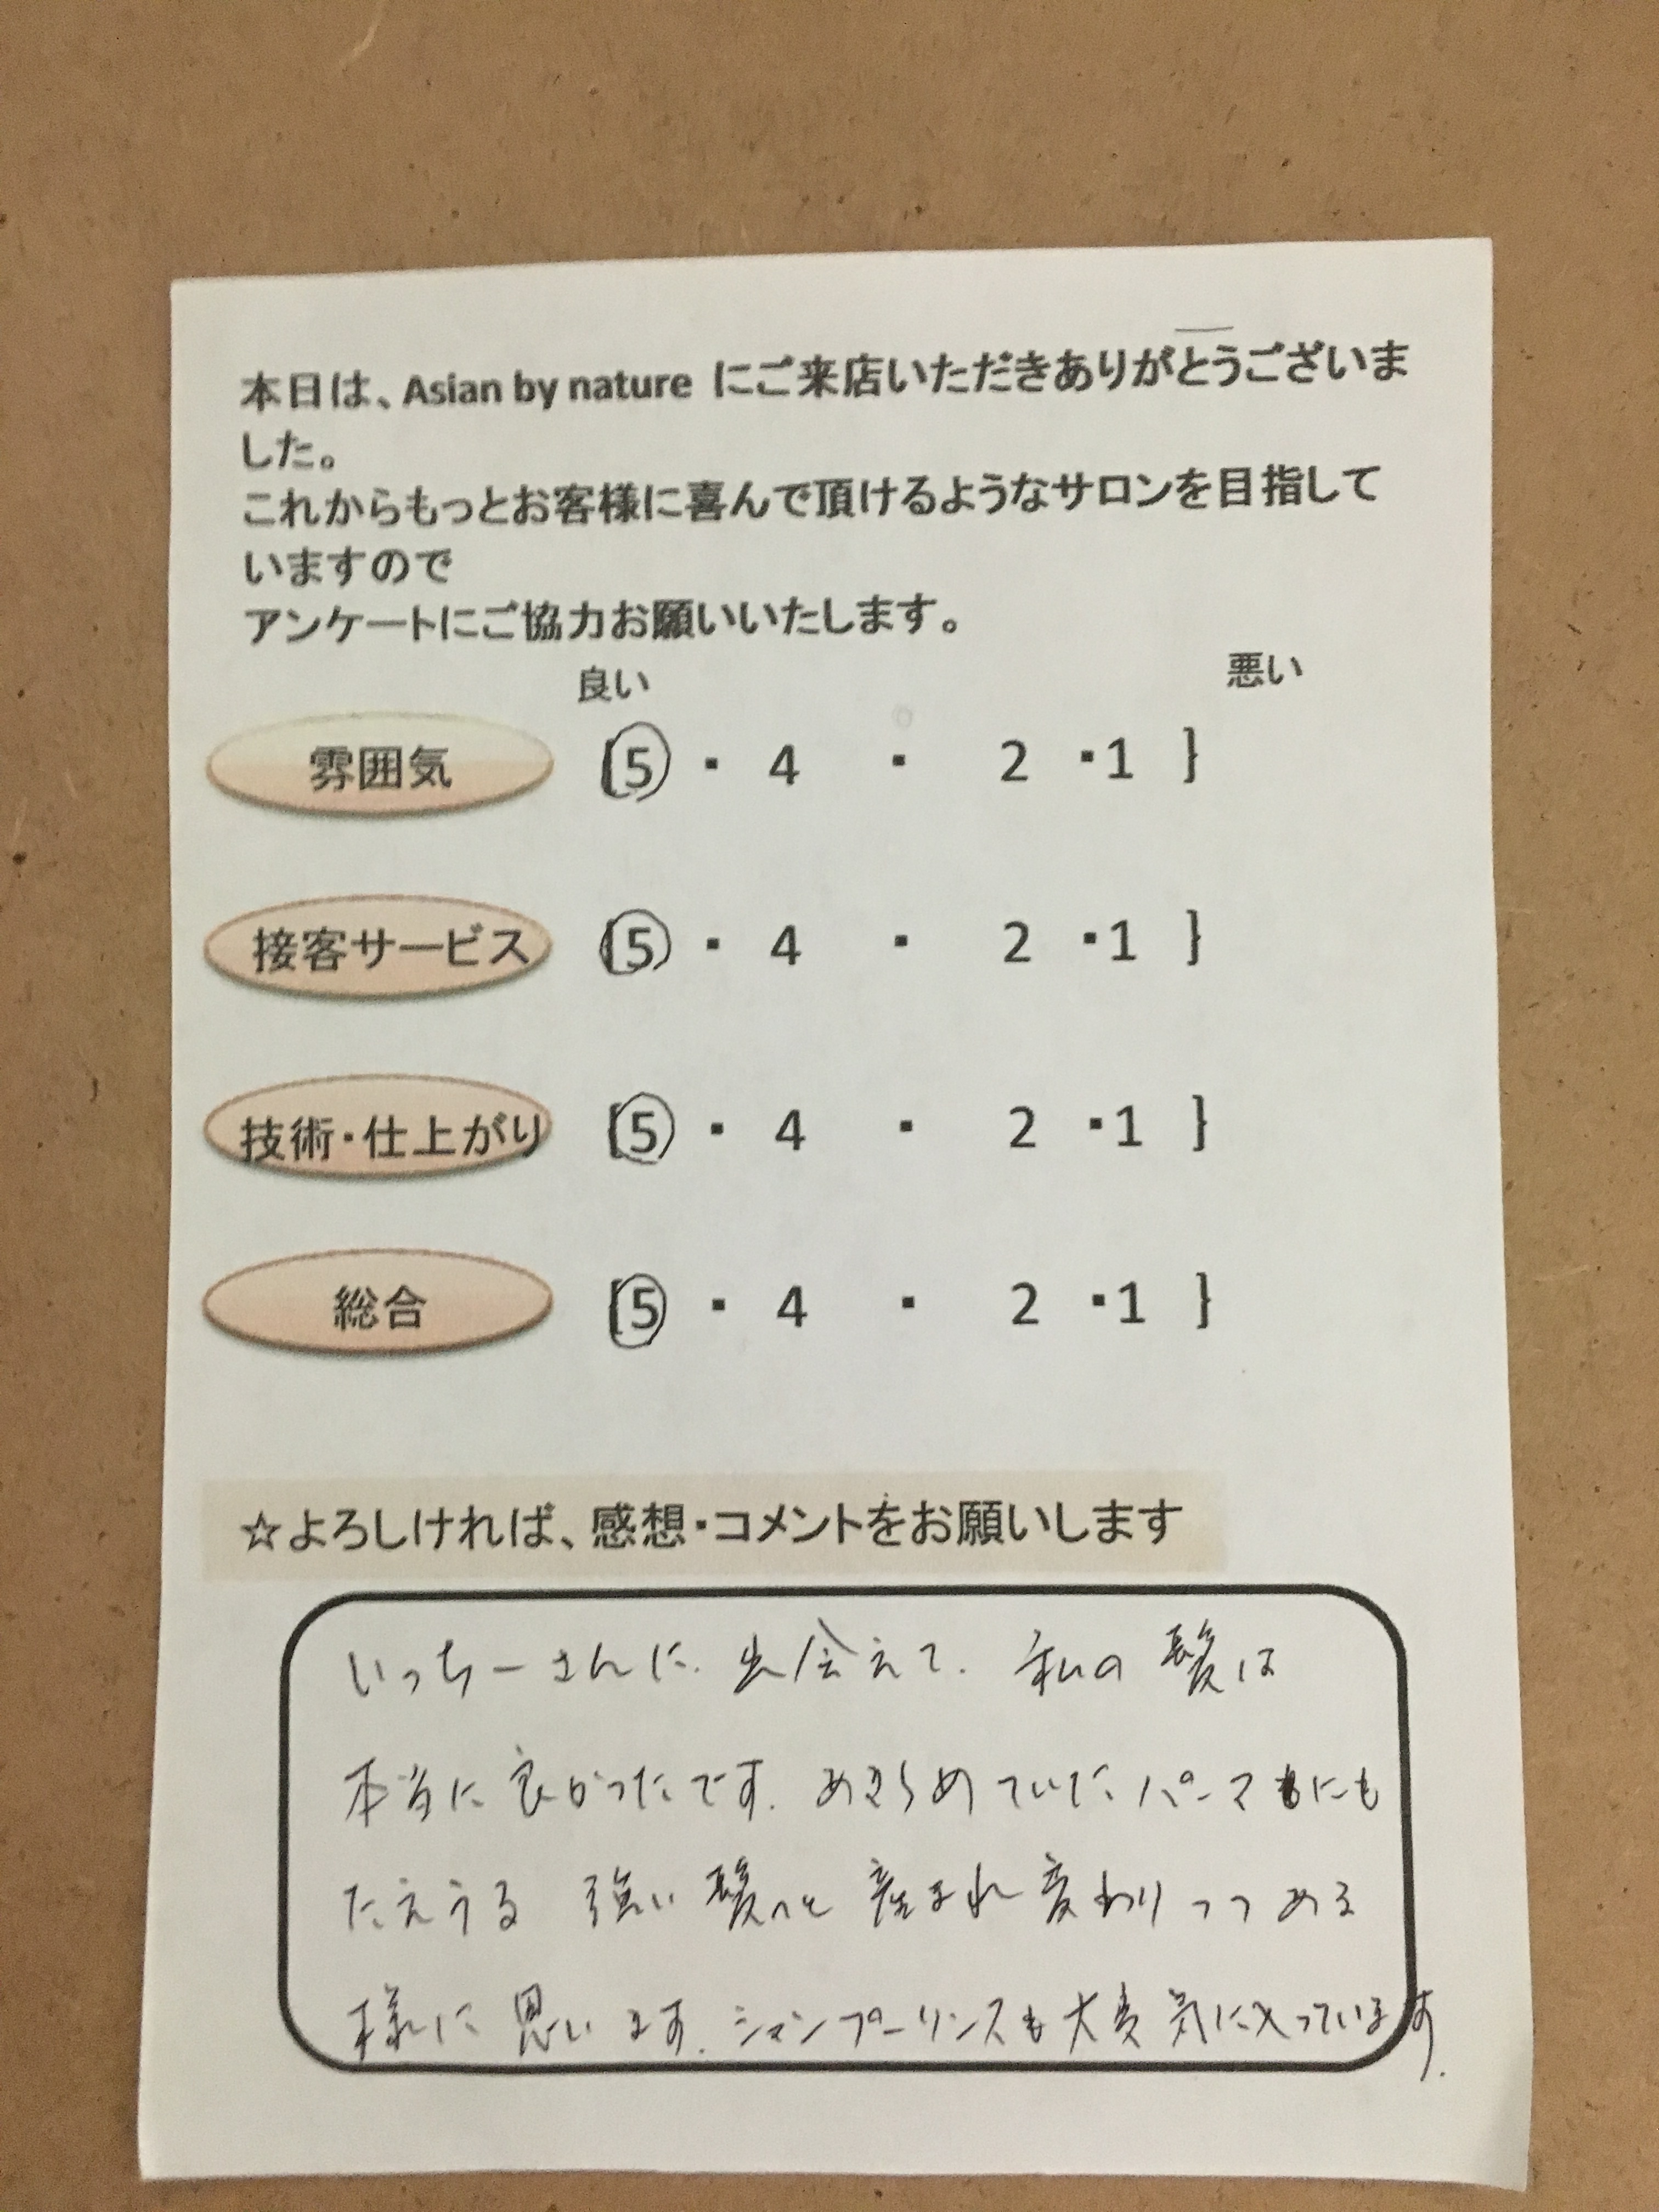 本日は、Asian by nature にご来店いただきありがとうございま
した。
これからもっとお客様に喜んで頂けるようなサロンを目指して
いますので
アンケートにご協力お願いいたします。
良い 悪い
雰囲気 {5 ・ 4 ・ 2 ・1 }
接客サービス {5 ・ 4 ・ 2 ・1 }
技術・仕上がり {5 ・ 4 ・ 2 ・1 }
総合 {5 ・ 4 ・ 2 ・1 }
☆よろしければ、感想・コメントをお願いします
いっちーさんに、出会えて、私の髪は
本当に良かったです。あきらめていたパーマにも
たえうる 強い髪へと 産まれ変わりつつある
様に思います。シャンプーリンスも大変気に入っています。